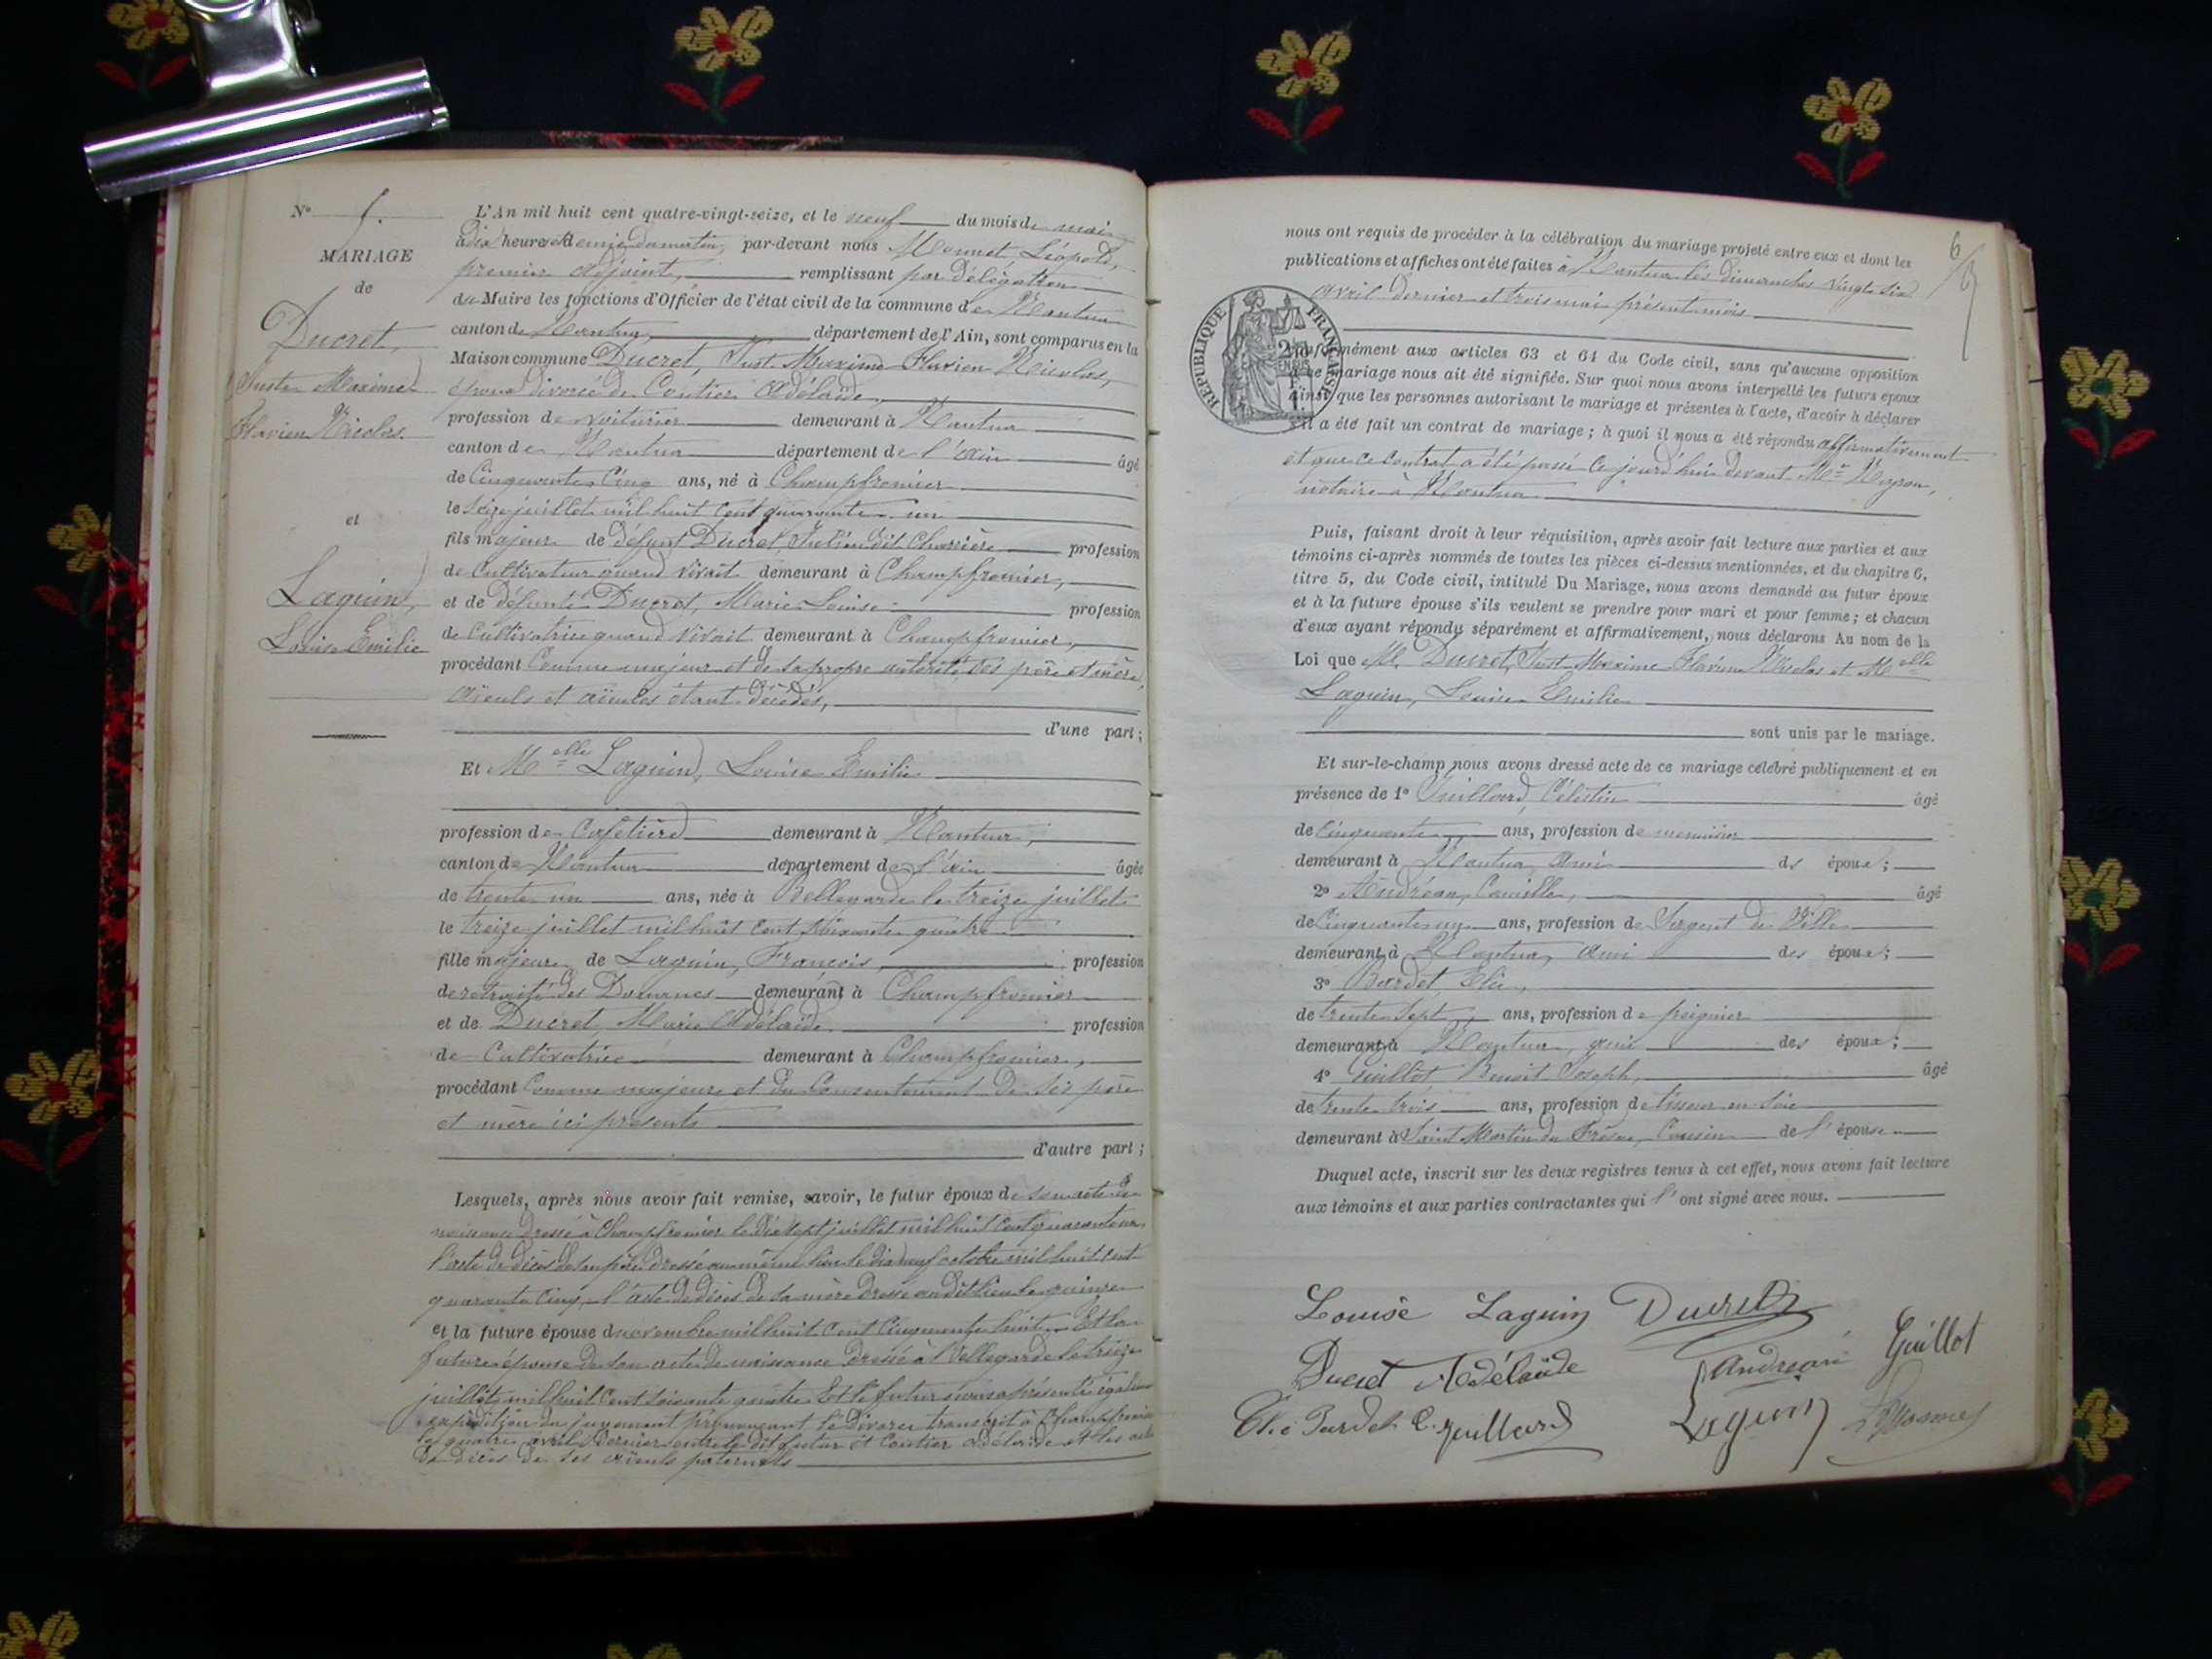 N° 5.
MARIAGE
de
Ducret,
Juste Maxime
Flavien Nicolas.
et
Laguin,
Louise Emilie
L'An mil huit cent quatre-vingt-seize, et le neuf du mois de mai
à dix heures et demie du matin, par-devant nous Léopold,
premier adjoint, remplissant par délégation
du Maire les fonctions d'Officier de l'état civil de la commune de Nantua
canton de Nantua, département de l'Ain, sont comparus en la
Maison commune Ducret, Just Maxime Flavien Nicolas,
époux divorcé de Coutier Adélaïde,
profession de voiturier demeurant à Nantua
canton de Nantua département de l'Ain âgé
de Cinquante Cinq ans, né à Champfromier
le Seize juillet mil huit cent quarante un
fils majeur de défunt Ducret, Julien dit Charrière profession
de Cultivateur quand vivait demeurant à Champfromier,
et de défunte Ducret, Marie Louise profession
de Cultivatrice quand vivait demeurant à Champfromier,
procédant Comme majeur et de sa propre autorité ses père et mère,
aïeuls et aïeules étant décédés,
d'une part;
Et Melle Laguin, Louise Emilie
profession de Cafetière demeurant à Nantua,
canton de Nantua département de l'Ain âgée
de trente un ans, née à Bellegarde le treize juillet
le treize juillet mil huit cent soixante quatre
fille majeure de Laguin, François, profession
de retraité des Douanes demeurant à Champfromier
et de Ducret, Marie Adélaïde profession
de Cultivatrice demeurant à Champfromier,
procédant Comme majeure et du Consentement de ses père
et mère ici présents
d'autre part;
Lesquels, après nous avoir fait remise, savoir, le futur époux de son acte de
naissance dressé à Champfromier le dix sept juillet mil huit cent quarante un
l'acte de décès de son père dressé au même lieu le dix neuf octobre mil huit cent
quarante cinq, l'acte de décès de sa mère dressé au dit lieu le quinze
et la future épouse d novembre mil huit cent cinquante huit. Et la
future épouse de son acte de naissance dressé à Bellegarde le treize
juillet mil huit cent soixante quatre Et le futur nous a présenté également
expédition du jugement prononçant le divorce transcrit à Champfromier
le quatre avril dernier entre le dit futur et Coutier Adélaïde et les actes
de décès de ses aïeuls paternels
6
nous ont requis de procéder à la célébration du mariage projeté entre eux et dont les
publications et affiches ont été faites à Nantua les dimanches vingt six
avril dernier et trois mai présent mois
RÉPUBLIQUE FRANÇAISE
conformément aux articles 63 et 64 du Code civil, sans qu'aucune opposition
à ce mariage nous ait été signifiée. Sur quoi nous avons interpellé les futurs époux
ainsi que les personnes autorisant le mariage et présentes à l'acte, d'avoir à déclarer
s'il a été fait un contrat de mariage; à quoi il nous a été répondu affirmativement
et que ce Contrat a été passé Ce jourd'hui devant Me
notaire à Nantua
Puis, faisant droit à leur réquisition, après avoir fait lecture aux parties et aux
témoins ci-après nommés de toutes les pièces ci-dessus mentionnées, et du chapitre 6,
titre 5, du Code civil, intitulé Du Mariage, nous avons demandé au futur époux
et à la future épouse s'ils veulent se prendre pour mari et pour femme; et chacun
d'eux ayant répondu séparément et affirmativement, nous déclarons Au nom de la
Loi que M. Ducret, Just Maxime Flavien Nicolas et Melle
Laguin, Louise Emilie
sont unis par le mariage.
Et sur-le-champ nous avons dressé acte de ce mariage célébré publiquement et en
présence de 1° Juillard, Célestin âgé
de cinquante ans, profession de menuisier
demeurant à Nantua, ami des époux;
2° Andréan, Camille, âgé
de cinquante un ans, profession de Sergent de Ville
demeurant à Nantua, ami des époux;
3° Bardet, Elie,
de trente sept ans, profession de peignier
demeurant à Nantua, ami des époux;
4° Guillot Benoit Joseph, âgé
de trente trois ans, profession de tisseur en soie
demeurant à Saint Martin du Frêne, Cousin de l'épouse
Duquel acte, inscrit sur les deux registres tenus à cet effet, nous avons fait lecture
aux témoins et aux parties contractantes qui l'ont signé avec nous.
Louise Laguin Ducret
Ducret Adélaïde Guillot
Elie Bardet C. Juillard Laguin